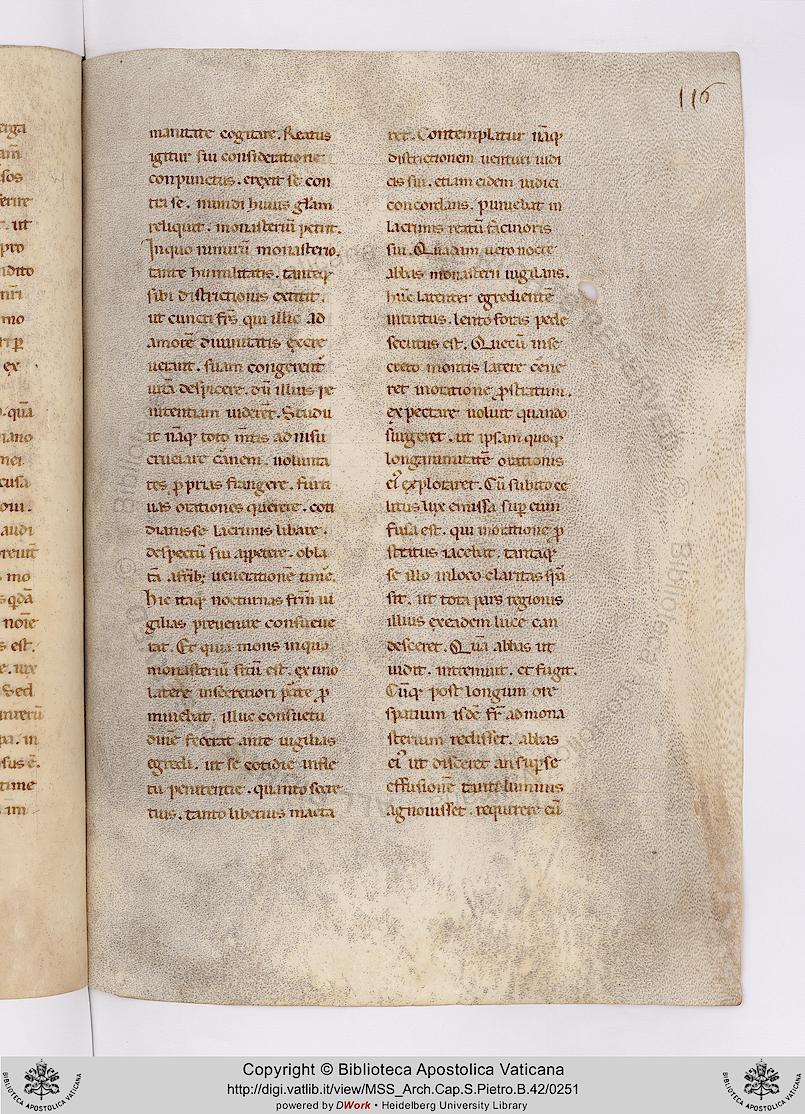 116
manitate cogitare. Reatus
igitur sui consideratione
conpunctus. erexit se con
tra se. mundi huius gl̄am
reliquit. monasteriū petiit.
In quo nimirū monasterio.
tante humilitatis. tanteq;
sibi districtionis extitit.
ut cuncti fr̄s qui illic ad
amorē divinitatis excre
verant. suam congerent̄
vitā despicere. dū illius pe
nitentiam videret̄. Studu
it nāq; toto m̄tis adnisu
cruciare carnem. volunta
tes pprias frangere. furti
vas orationes querere. coti
dianis se lacrimis lavare.
despectū sui appetere. obla
tā a fr̄ib; venerationē timē.
Hic itaq; nocturnas fr̄m vi
gilias prevenire consueve
rat. Et quia mons in quo
monasteriū sitū est. ex uno
latere in secretiori parte p
minebat. illuc consuetu
dinē fecerat ante vigilias
egredi. ut se cotidie in fle
tu penitentie. quanto secre
tius. tanto liberius macta
ret. Contemplatur nāq;
districtionem venturi iudi
cis sui. etiam eidem iudici
concordans. puniebat in
lacrimis reatū facinoris
sui. Quadam vero nocte
abbas monasterii vigilans.
hūc latenter egredientē
intuitus. lento foras pede
secutus est. Quem cū in se
creto montis latere cerne
ret in oratione pstratum.
expectare voluit quando
surgeret. ut ipsam quoq;
longanimitatē orationis
ei' exploraret. Cū subito ce
litus lux emissa sup eum
fusa est. qui in oratione p
stratus iacebat. tantaq;
se illo in loco claritas spa
sit. ut tota pars regionis
illius ex eadem luce can
desceret. Quā abbas ut
vidit. intremuit. et fugit.
Cūq; post longum ore
spatium isdē fr̄ ad mona
sterium redisset. abbas
ei' ut disceret an sup se
effusionē tanti luminis
agnovisset. requirere eū
Copyright © Biblioteca Apostolica Vaticana
http://digi.vatlib.it/view/MSS_Arch.Cap.S.Pietro.B.42/0251
powered by DWork • Heidelberg University Library